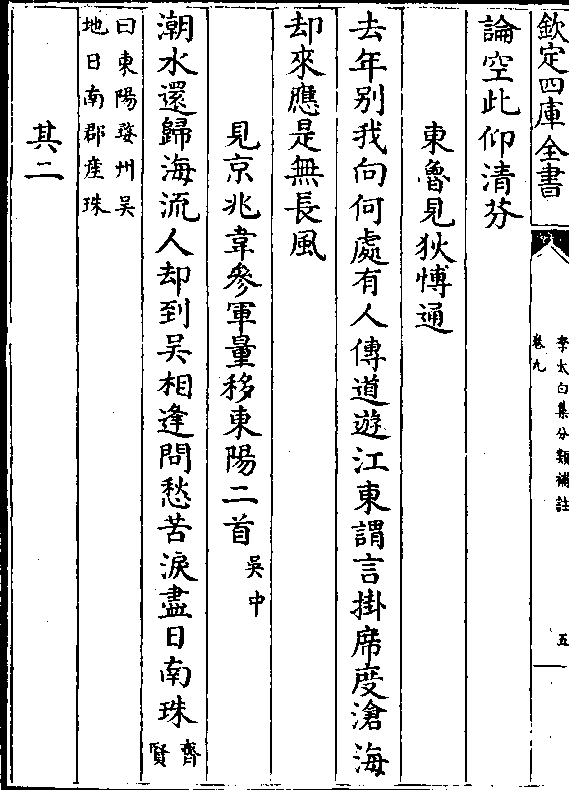 欽定四庫全書
李太白集分類補註
卷九
五
論空此仰清芬
東魯見狄愽通
去年别我向何處有人傳道遊江東謂言掛席度滄海
却來應是無長風
見京兆韋參軍量移東陽二首吳中
潮水還歸海流人却到吳相逢問愁苦淚盡日南珠齊賢
曰東陽婺州吳
地日南郡産珠
其二